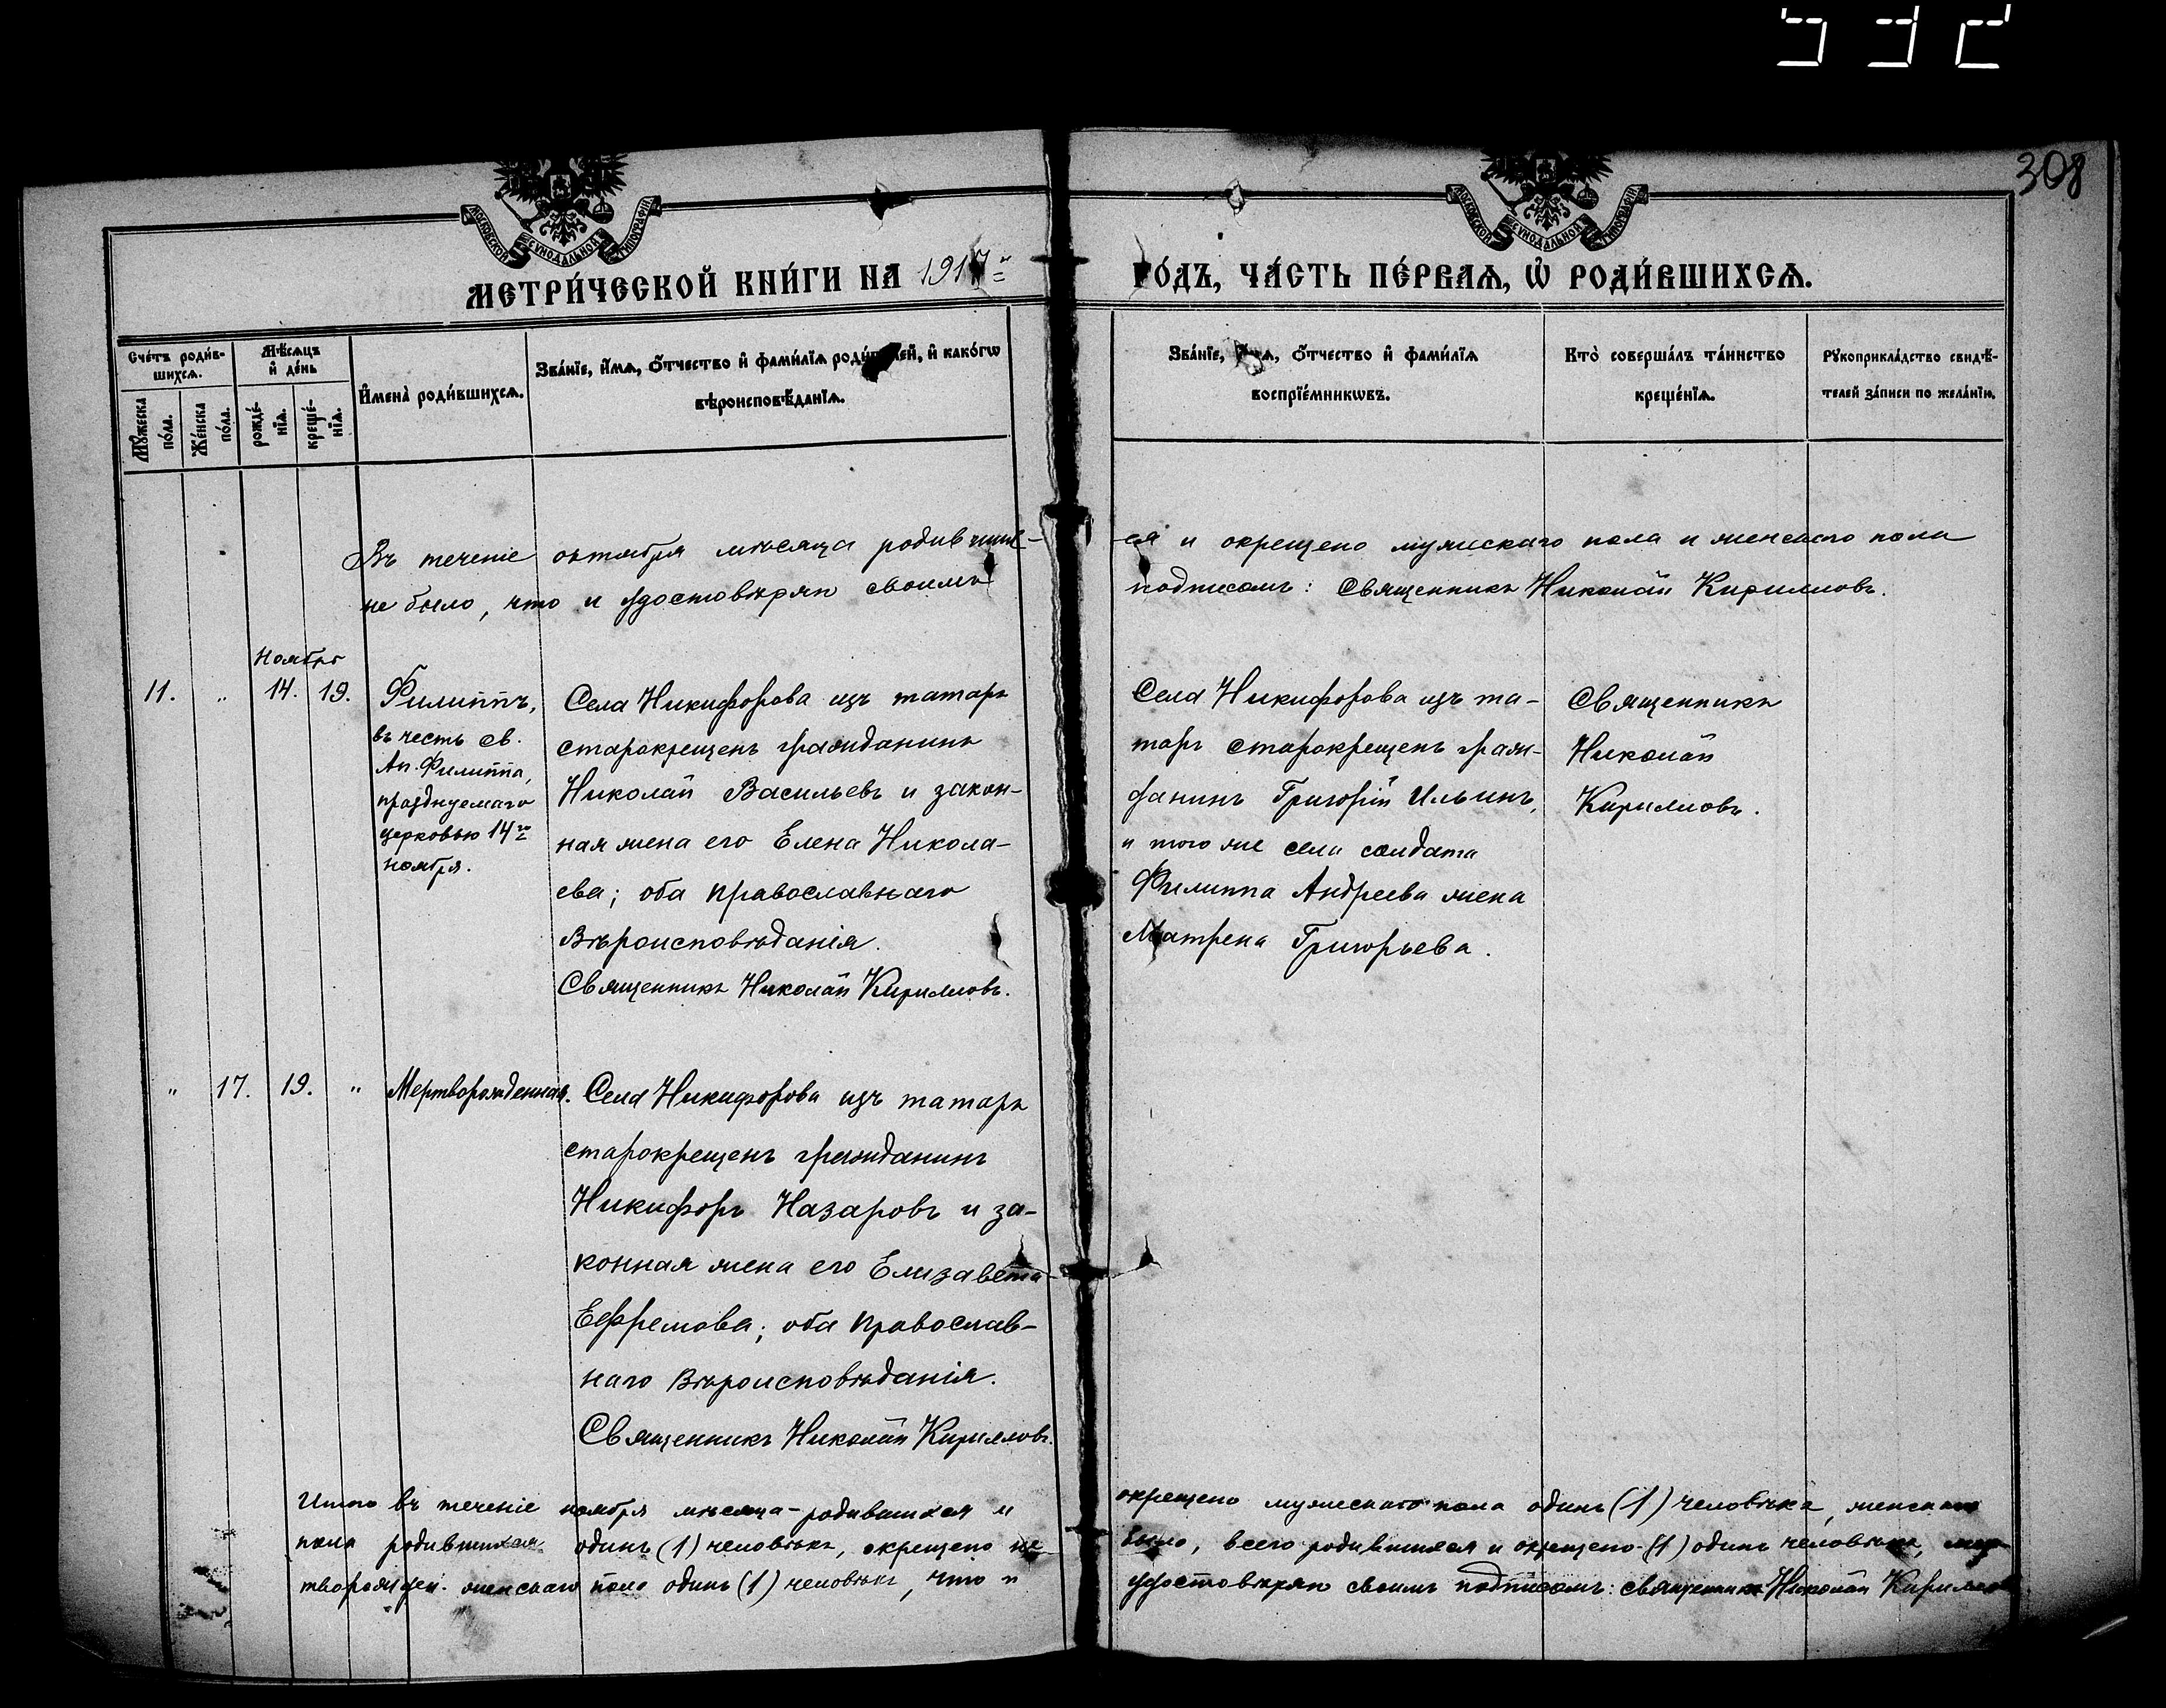 308
МОСКОВСКОЙ СѴНОДАЛЬНОЙ ТИПОГРАФІИ
МОСКОВСКОЙ СѴНОДАЛЬНОЙ ТИПОГРАФІИ
МЕТРИ́ЧЕСКОЙ КНИ́ГИ НА 1917й
ГО́ДЪ, ЧА́СТЬ ПЕ́РВАѦ, Ѡ҆ РОДИ́ВШИХСѦ.
Сче́тъ роди́в-
шихсѧ.
Мꙋжеска по́ла.
Же́нска по́ла.
Мѣ́сѧцъ и҆ де́нь
рожде́-
нїѧ.
креще́-
нїѧ.
И҆мена̀ роди́вшихсѧ.
Зва́нїе, и҆́мѧ, ѻ҆́тчество и҆ фами́лїѧ роди́телей, и҆ како́гѡ
вѣроисповѣ́данїѧ.
Зва́нїе, и҆́мѧ, ѻ҆́тчество и҆ фами́лїѧ
воспрїе́мникѡвъ.
Кто̀ соверша́лъ та́инство
креще́нїѧ.
Рꙋкоприкла́дство свидѣ́-
телей за́писи по жела́нїю.
Въ теченіе октября мѣсяца родивших-
ся и окрещено мужескаго пола и женскаго пола
не было, что и удостовѣряю своимъ
подписомъ: Священникъ Николай Кирилловъ.
Ноябрь
11. „ 14. 19.
Филиппъ,
въ честь св.
Ап. Филиппа,
празднуемаго
церковью 14го
ноября.
Села Никифорова изъ татаръ
старокрещенъ гражданинъ
Николай Васильевъ и закон-
ная жена его Елена Никола-
ева; оба православнаго
Вѣроисповѣданія.
Священникъ Николай Кирилловъ.
Села Никифорова изъ та-
таръ старокрещенъ граж-
данинъ Григорій Ильинъ,
и того же села солдата
Филиппа Андреева жена
Матрена Григорьева.
Священникъ
Николай
Кирилловъ.
„ 17. 19. „
Мертворожденная.
Села Никифорова изъ татаръ
старокрещенъ гражданинъ
Никифоръ Назаровъ и за-
конная жена его Елизавета
Ефремова; оба Православ-
наго Вѣроисповѣданія.
Священникъ Николай Кирилловъ.
Итого въ теченіе ноября мѣсяца-родившихся и
окрещено мужескаго пола одинъ (1) человѣкъ, женскаго
пола родившихся одинъ (1) человѣкъ, окрещено не
было, всего родившихся и окрещено-(1) одинъ человѣкъ, мер-
творожден. женскаго пола одинъ (1) человѣкъ, что и
удостовѣряю своимъ подписомъ: священникъ Николай Кирилловъ